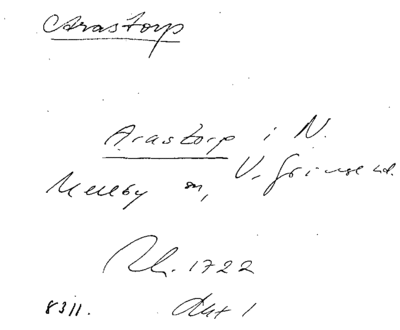 Arastorp
Arastorp i N.
Mellby sn, V. Göinge hd.
Rh. 1722
8311. Akt 1